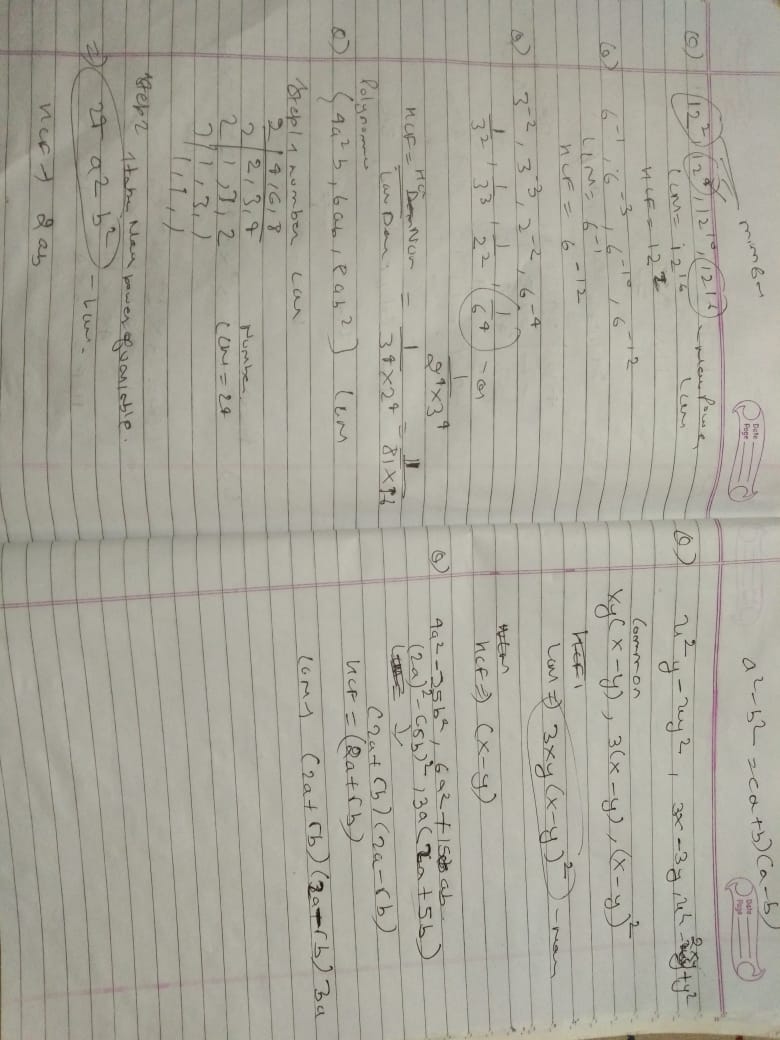 minimum
Date
Page
Q) 12², 12⁴, 12¹⁰, 12¹⁶ - Max Power
LCM = 12¹⁶ LCM
HCF = 12²
Q) 6⁻¹, 6⁻³, 6⁻¹⁰, 6⁻¹²
LCM = 6⁻¹
HCF = 6⁻¹²
Q) 3⁻², 3⁻³, 2⁻², 6⁻⁴
1/3², 1/3³, 1/2², 1/6⁴
1/2⁴×3⁴
HCF = HCF Num / LCM Den. = 1/3⁴×2⁴ = 1/81×16
Polynomial
Q) {4a²b, 6ab, 8ab²} LCM
Step 1 number LCM
2 | 4, 6, 8
2 | 2, 3, 4
2 | 1, 3, 2
3 | 1, 3, 1
1, 1, 1
Number
LCM = 24
Step 2 take Max power of variable.
=) 24 a² b² - LCM.
HCF → 2ab
a² - b² = (a+b)(a-b)
Date
Page
Q) x²y - xy², 3x - 3y, x² - 2xy + y²
Common
xy(x-y), 3(x-y), (x-y)²
HCF
LCM ⇒ 3xy(x-y)² - max
HCF ⇒ (x-y)
Q) 4a² - 25b², 6a² + 15ab
(2a)² - (5b)², 3a(2a+5b)
(2a+5b)(2a-5b)
HCF = (2a+5b)
LCM → (2a+5b)(2a-5b)3a